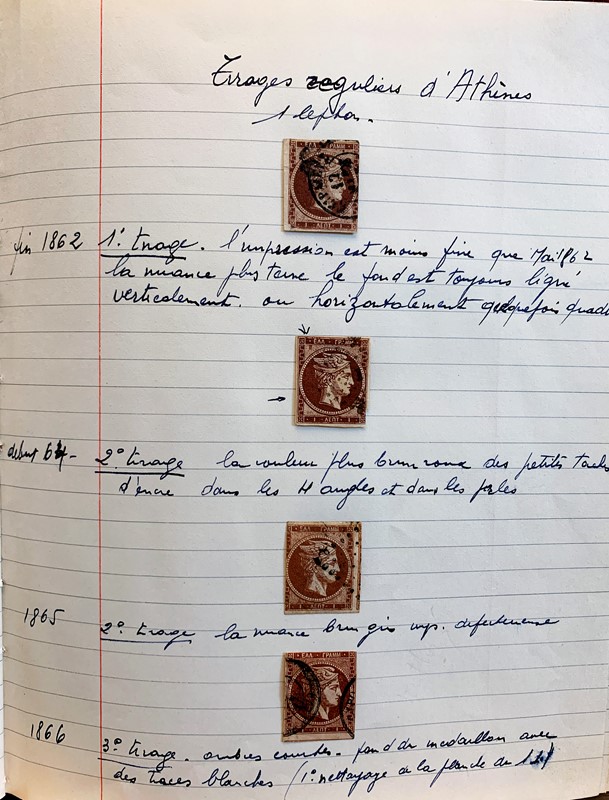 Tirages reguliers d'Athènes
1 lepton.
fin 1862 1° tirage. l'impression est moins fine que Mai 1862
la nuance plus terne le fond est toujours ligné
verticalement ou horizontalement quelquefois quadr
ΕΛΛ. ΓΡΑΜΜ
1 ΛΕΠΤ. 1
debut 64- 2° tirage la couleur plus brun roux des petites taches
d'encre dans les 4 angles et dans les perles
1865 2° tirage la nuance brun gris imp. defectueuse
ΕΛΛ. ΓΡΑΜΜ
1866 3° tirage. ombres courtes. fond du medaillon avec
des traces blanches (1° nettoyage de la planche de